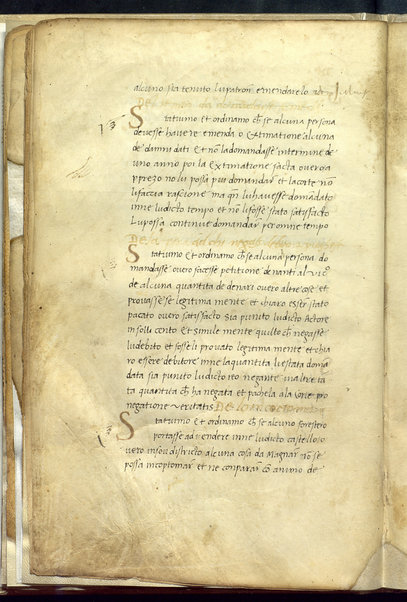 alcuno sia tenuto lu patron emendarelo
Statuimo et ordinamo ch se alcuna persona
devesse havere emenda o extimatione alcuna
de damni dati et nō la domandasse intermine de
uno anno poi la extimatione facta overo a
p̄rezo no lu possa piu domandar et la corte nō
li faccia rascione ma qn̄ lu havesse domādato
inne ludicto tempo et nō li fosse stato satisfacto
Lu possa continue domandar per omne tempo
Statuimo et ordinamo ch se alcuna persona do
mandasse overo facesse petitione denanti al vic͞
de alcuna quantita de denari overo altre cose et
provasse se legitima mente et chiaro esser stato
pacato overo satisfacto sia punito ludicto Actore
in solli cento et simile mente quillo ch negasse
lu debito et fosse li provato legitima mente et chia
ro essere debitore inne la quantita li e stata doman
data sia punito ludicto reo negante in altre ta
ta quantita ch ha negata et paghela a la Corte pro
negatione veritatis
Statuimo et ordinamo ch se alcuno forestero
portasse ad vendere inne ludicto castello o
vero in sou districto alcuna cosa da magnar nō se
possa incoptomar et ne conparar cō animo de